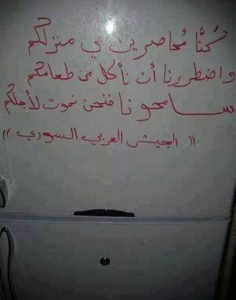 كنَّا مُحاصرين في منزلكم
واضطررنا أن نأكل من طعامكم
سامحونا فنحن نموت لأجلكم
(( الجيش العربي السوري ))